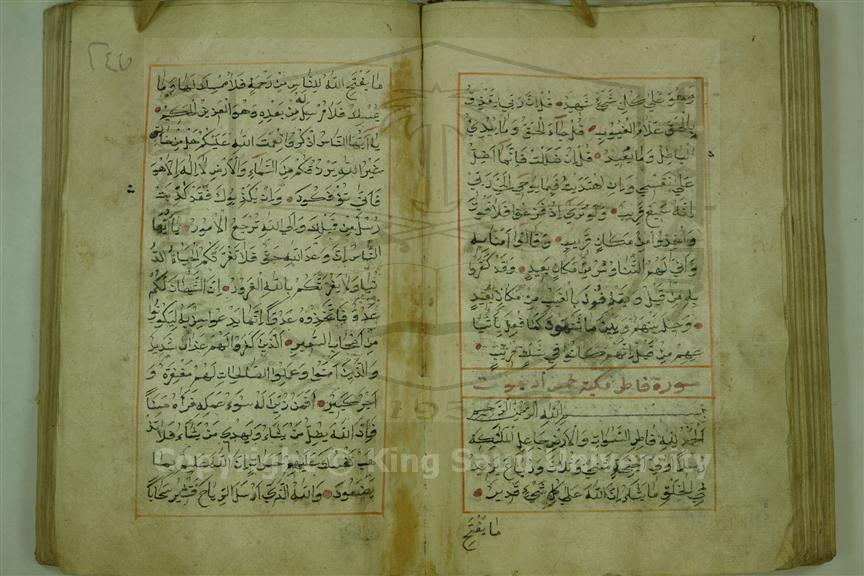 وهو على كل شيء شهيد قل ان ربي يقذف
بالحق علام الغيوب قل جاء الحق وما يبدئ
الباطل وما يعيد قل ان ضللت فانما اضل
على نفسي وان اهتديت فبما يوحي الي ربي
انه سميع قريب ولو ترى اذ فزعوا فلا فوت
واخذوا من مكان قريب وقالوا امنا به
وانى لهم التناوش من مكان بعيد وقد كفروا
به من قبل ويقذفون بالغيب من مكان بعيد
وحيل بينهم وبين ما يشتهون كما فعل باشيا
عهم من قبل انهم كانوا في شك مريب
سورة فاطر مكية خمس اربعون
بسم الله الرحمن الرحيم
الحمد لله فاطر السموات والارض جاعل الملئكة
رسلا اولي اجنحة مثنى وثلاث ورباع يزيد
في الخلق ما يشاء ان الله على كل شيء قدير
ما يفتح
٢٤٧
ما يفتح الله للناس من رحمة فلا ممسك لها وما
يمسك فلا مرسل له من بعده وهو العزيز الحكيم
يا ايها الناس اذكروا نعمت الله عليكم هل من خالق
غير الله يرزقكم من السماء والارض لا اله الا هو
فانى تؤفكون وان يكذبوك فقد كذبت
رسل من قبلك والى الله ترجع الامور يا ايها
الناس ان وعد الله حق فلا تغرنكم الحياة الد
نيا ولا يغرنكم بالله الغرور ان الشيطان لكم
عدو فاتخذوه عدوا انما يدعوا حزبه ليكونوا
من اصحاب السعير الذين كفروا لهم عذاب شديد
والذين امنوا وعملوا الصالحات لهم مغفرة و
اجر كبير افمن زين له سوء عمله فرأه حسنا
فان الله يضل من يشاء ويهدي من يشاء فلا تذ
هب نفسك عليهم حسرات ان الله عليم بما
يصنعون والله الذي ارسل الرياح فتثير سحابا
Copyright © King Saud University
195